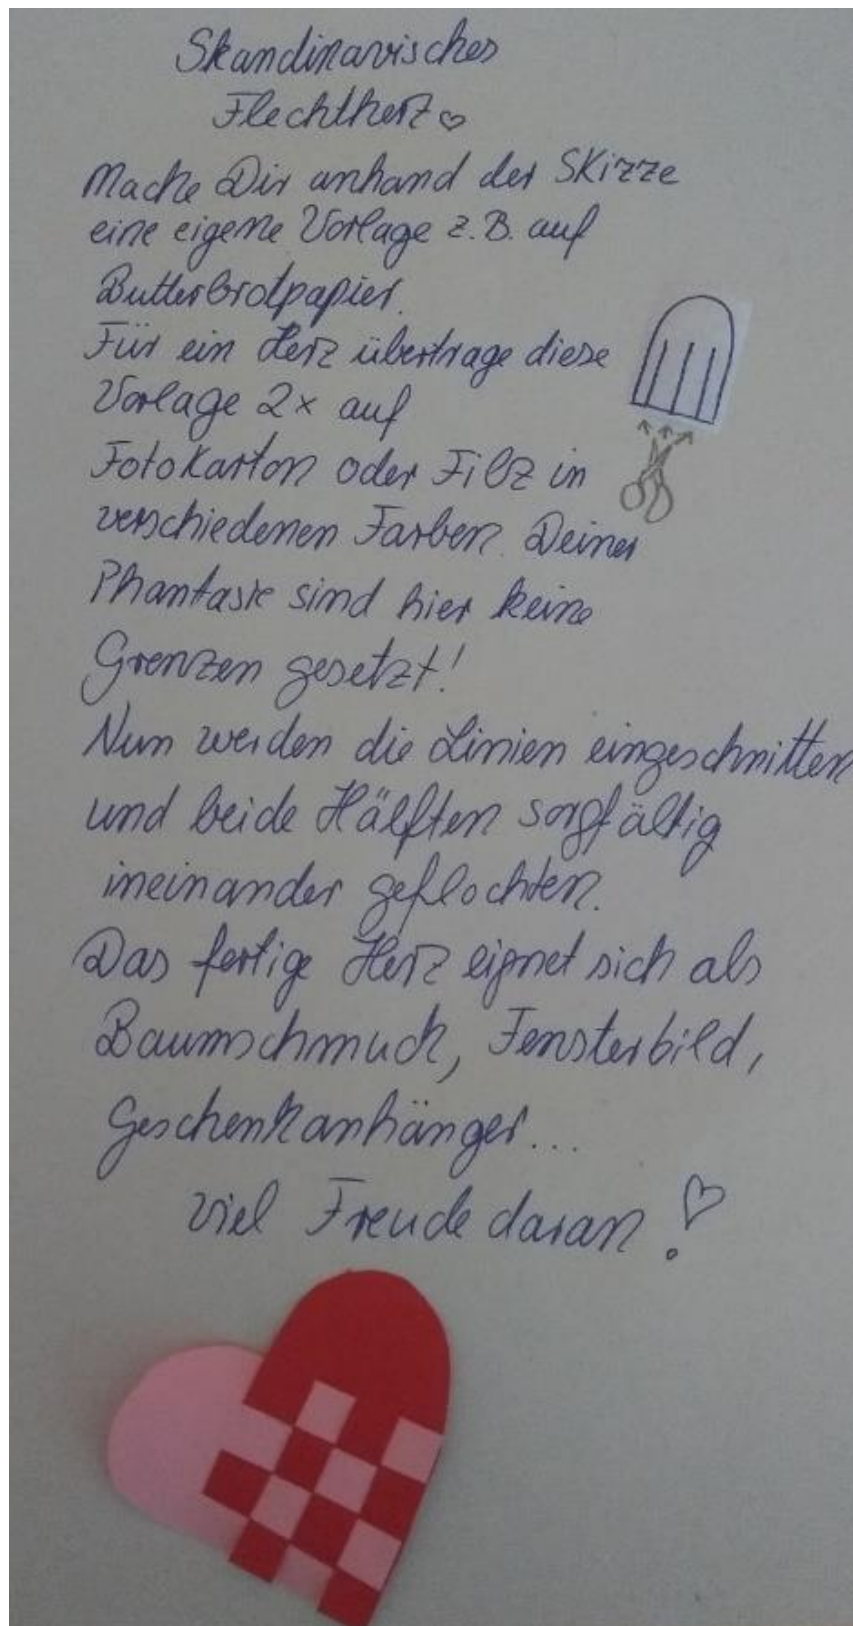 Skandinavisches
Flechtherz
Mache Dir anhand der Skizze
eine eigene Vorlage z.B. auf
Butterbrotpapier.
Für ein Herz übertrage diese
Vorlage 2x auf
Fotokarton oder Filz in
verschiedenen Farben. Deiner
Phantasie sind hier keine
Grenzen gesetzt!
Nun werden die Linien eingeschnitten
und beide Hälften sorgfältig
ineinander geflochten.
Das fertige Herz eignet sich als
Baumschmuck, Fensterbild,
Geschenkanhänger...
Viel Freude daran!